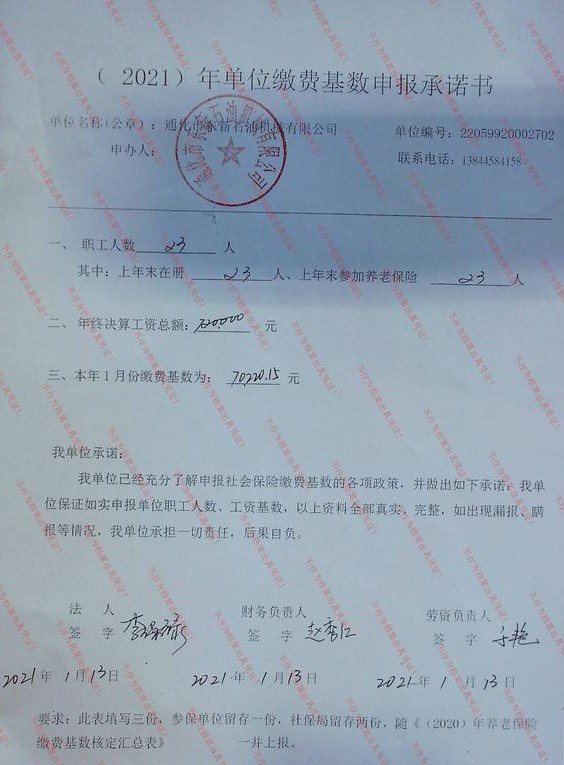 （ 2021）年单位缴费基数申报承诺书
单位名称(公章)：通化市永新石油机械有限公司 单位编号：22059920002702
申办人： 联系电话：13844584158
一、 职工人数 23 人
其中：上年末在册 23 人、上年末参加养老保险 23 人
二、年终决算工资总额： 元
三、本年1月份缴费基数为： 70220.15 元
我单位承诺：
我单位已经充分了解申报社会保险缴费基数的各项政策，并做出如下承诺：我单
位保证如实申报单位职工人数、工资基数，以上资料全部真实、完整，如出现漏报、瞒
报等情况，我单位承担一切责任，后果自负。
法 人 财务负责人 劳资负责人
签 字 签 字 赵秀仁 签 字 于艳
2021年 1月13日 2021年 1月13日 2021年 1月13日
要求：此表填写三份，参保单位留存一份，社保局留存两份，随《（2020）年养老保险
缴费基数核定汇总表》 一并上报。